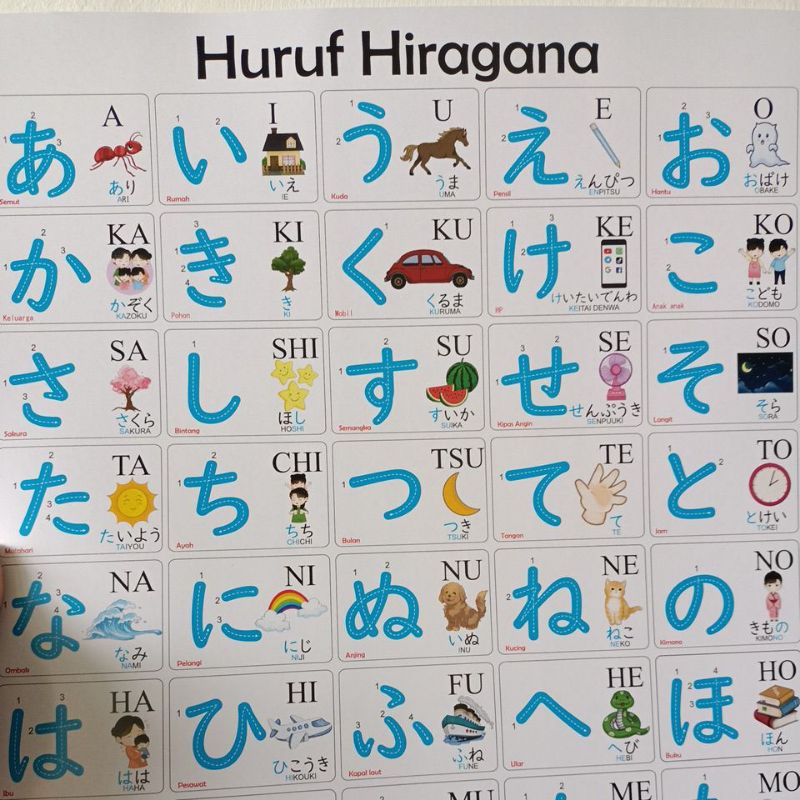 Huruf Hiragana
1 2 3 あ A あり ARI Semut
1 2 い I いえ IE Rumah
1 2 う U うま UMA Kuda
1 2 え E えんぴつ ENPITSU Pensil
1 2 3 お O おばけ OBAKE Hantu
1 2 3 か KA かぞく KAZOKU Keluarga
1 2 3 4 き KI き KI Pohon
く KU くるま KURUMA Mobil
1 2 3 け KE けいたいでんわ KEITAI DENWA HP
1 2 こ KO こども KODOMO Anak anak
1 2 3 さ SA さくら SAKURA Sakura
し SHI ほし HOSHI Bintang
1 2 す SU すいか SUIKA Semangka
1 2 3 せ SE せんぷうき SENPUUKI Kipas Angin
そ SO そら SORA Langit
1 2 3 4 た TA たいよう TAIYOU Matahari
1 2 ち CHI ちち CHICHI Ayah
つ TSU つき TSUKI Bulan
て TE て TE Tangan
1 2 と TO とけい TOKEI Jam
1 2 3 4 な NA なみ NAMI Ombak
1 2 3 に NI にじ NIJI Pelangi
1 2 ぬ NU いぬ INU Anjing
1 2 ね NE ねこ NEKO Kucing
の NO きもの KIMONO Kimono
1 2 3 は HA はは HAHA Ibu
1 ひ HI ひこうき HIKOUKI Pesawat
1 2 3 4 ふ FU ふね FUNE Kapal laut
1 へ HE へび HEBI Ular
1 2 3 4 ほ HO ほん HON Buku
MU
ME
MO